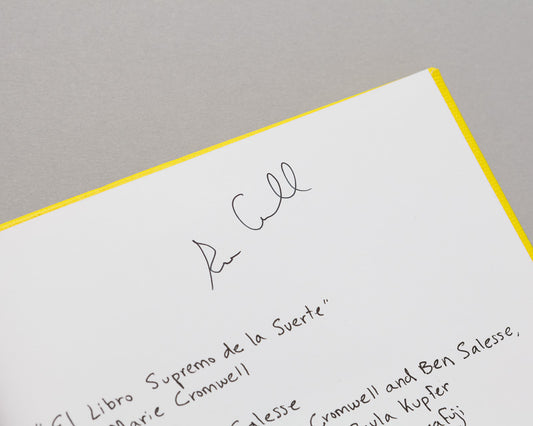 "El Libro Supremo de la Suerte"
Marie Cromwell
Salesse
Cromwell and Ben Salesse,
Kupfer